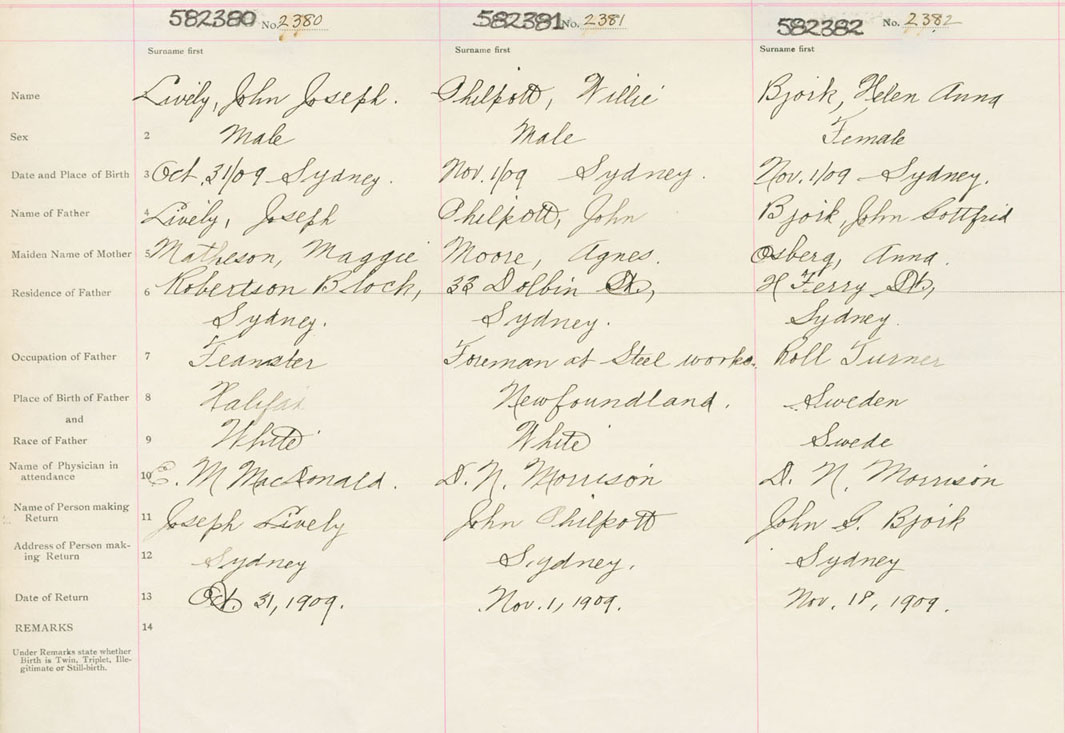 582380 No. 2380 582381 No. 2381 582382 No. 2382
Surname first Surname first Surname first
Name Lively, John Joseph. Philpott, Willie Bjork, Helen Anna
Sex 2 Male Male Female
Date and Place of Birth 3 Oct. 31/09 Sydney. Nov. 1/09 Sydney. Nov. 1/09 Sydney.
Name of Father 4 Lively, Joseph Philpott, John Bjork, John Gottfrid
Maiden Name of Mother 5 Matheson, Maggie Moore, Agnes. Osberg, Anna.
Residence of Father 6 Robertson Block, 33 Dolbin St., Ferry St.,
Sydney. Sydney. Sydney.
Occupation of Father 7 Teamster Foreman at Steel works. Roll Turner
Place of Birth of Father 8 Halifax Newfoundland. Sweden
and
Race of Father 9 White White Swede
Name of Physician in
attendance 10 E. M MacDonald. D. N. Morrison D. N. Morrison
Name of Person making
Return 11 Joseph Lively John Philpott John G. Bjork
Address of Person mak-
ing Return 12 Sydney Sydney. Sydney
Date of Return 13 Oct. 31, 1909. Nov. 1, 1909. Nov. 18, 1909.
REMARKS 14
Under Remarks state whether
Birth is Twin, Triplet, Ille-
gitimate or Still-birth.